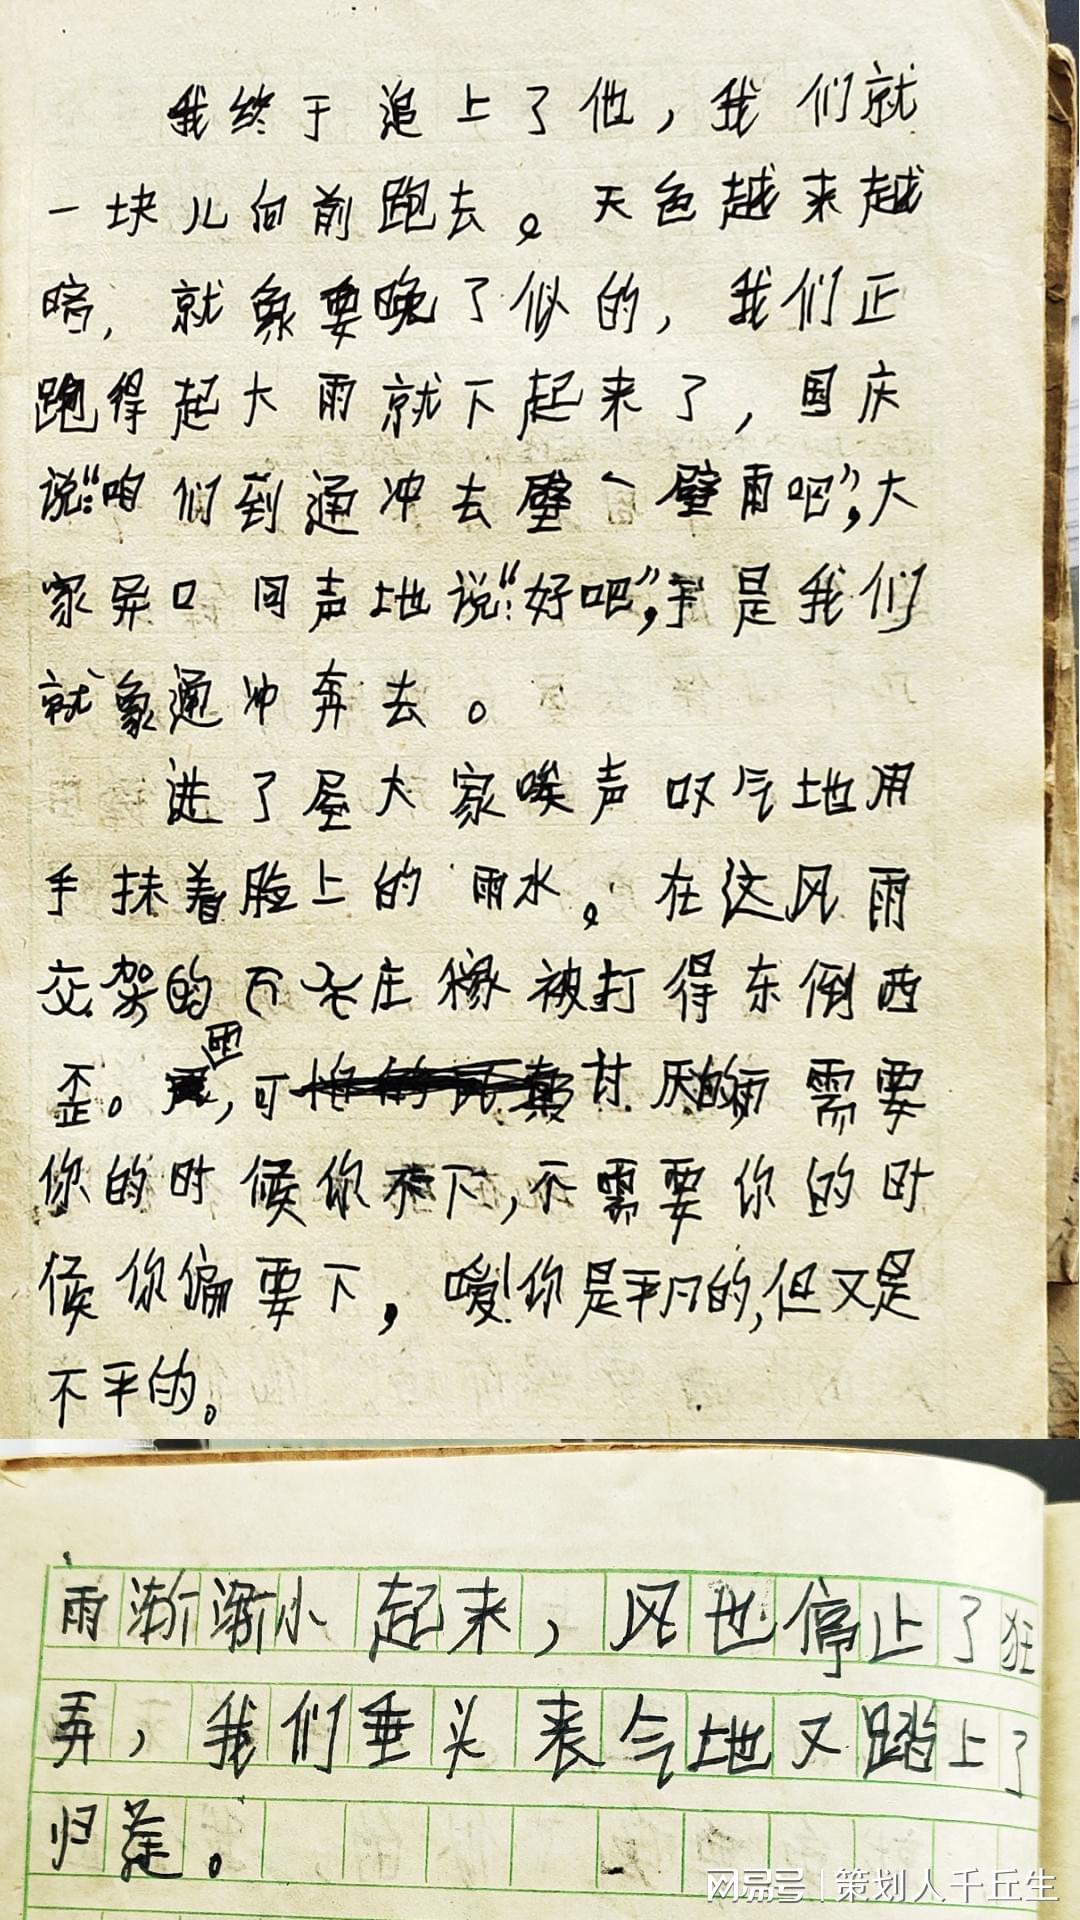 我终于追上了他，我们就
一块儿向前跑去。天色越来越
暗，就象要晚了似的，我们正
跑得起大雨就下起来了，国庆
说：“咱们到通冲去壁一壁雨吧”，大
家异口同声地说：“好吧”，于是我们
就象通冲奔去。
进了屋大家唉声叹气地用
手抹着脸上的雨水。在这风雨
交架的下 庄稼被打得东倒西
歪。雨，可甘厌的雨需要
你的时候你不下，不需要你的时
候你偏要下，嗳！你是平凡的，但又是
不平的。
雨渐渐小起来，风也停止了狂
弄，我们垂头丧气地又踏上了
归
网易号 | 策划人千丘生